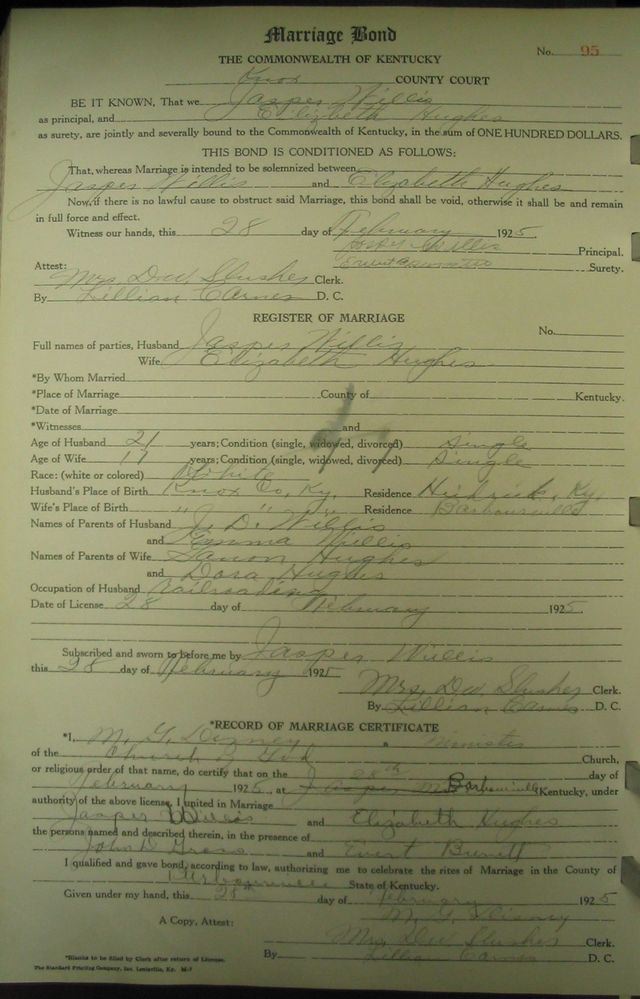 Marriage Bond
No. 95
THE COMMONWEALTH OF KENTUCKY
Knox COUNTY COURT
BE IT KNOWN, That we Jasper Willis
as principal, and Elizabeth Hughes
as surety, are jointly and severally bound to the Commonwealth of Kentucky, in the sum of ONE HUNDRED DOLLARS.
THIS BOND IS CONDITIONED AS FOLLOWS:
That, whereas Marriage is intended to be solemnized between
Jasper Willis and Elizabeth Hughes
Now, if there is no lawful cause to obstruct said Marriage, this bond shall be void, otherwise it shall be and remain
in full force and effect.
Witness our hands, this 28 day of February 1925.
Willis Principal.
Surety.
Attest:
Mrs. D.W. Slusher Clerk.
By Lillian Carnes D. C.
REGISTER OF MARRIAGE
No.
Full names of parties, Husband Jasper Willis
Wife Elizabeth Hughes
*By Whom Married
*Place of Marriage County of Kentucky.
*Date of Marriage
*Witnesses and
Age of Husband 21 years; Condition (single, widowed, divorced) Single
Age of Wife 17 years; Condition (single, widowed, divorced) Single
Race: (white or colored) White
Husband's Place of Birth Knox Co, Ky. Residence Ky.
Wife's Place of Birth " " " Residence Barbourville
Names of Parents of Husband J. D. Willis
and Emma Willis
Names of Parents of Wife Hughes
and Dora Hughes
Occupation of Husband Railroading
Date of License 28 day of February 1925.
Subscribed and sworn to before me by Jasper Willis
this 28 day of February 1925
Mrs. D.W. Slusher Clerk.
By Lillian Carnes D. C.
*RECORD OF MARRIAGE CERTIFICATE
*I, M. G. Disney a Minister
of the Church of God Church,
or religious order of that name, do certify that on the 28th day of
February 1925, at Barbourville Kentucky, under
authority of the above license, I united in Marriage
Jasper Willis and Elizabeth Hughes
the persons named and described therein, in the presence of
John D Gross and Evert Burnett
I qualified and gave bond, according to law, authorizing me to celebrate the rites of Marriage in the County of
Barbourville State of Kentucky.
Given under my hand, this 28th day of February 1925
M. G. Disney
A Copy, Attest:
Mrs. D.W. Slusher Clerk.
By Lillian Carnes D. C.
*Blanks to be filled by Clerk after return of License.
The Standard Printing Company, Inc. Louisville, Ky. M-7